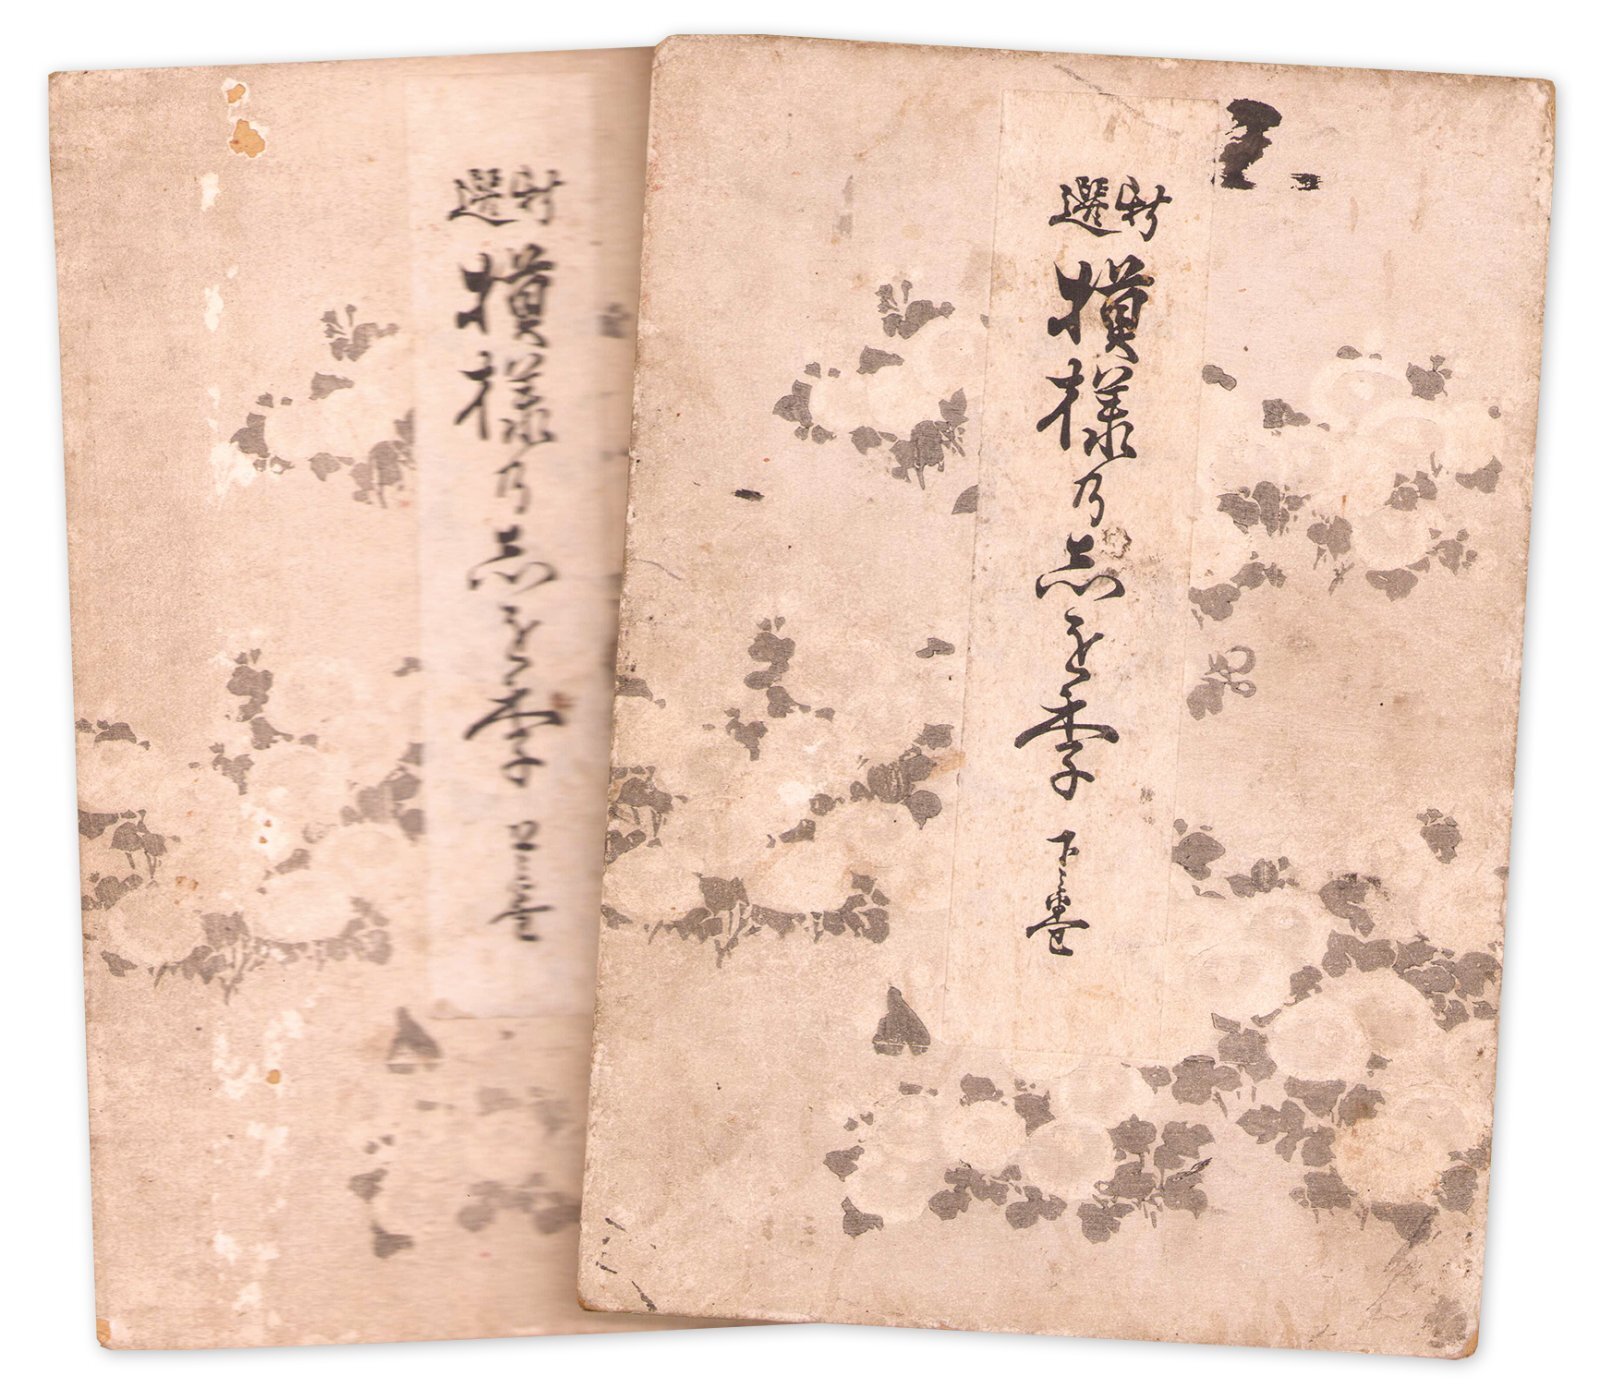 新選
模様乃志を李
上之巻
新選
模様乃志を李
下之巻